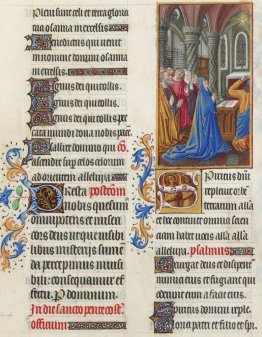 Pleni sunt celi et terra gloria
osanna in excelsis
Benedictus qui uenit
in nomine domini osanna
in excelsis
Agnus dei qui tollis
Agnus dei qui tollis
Agnus dei qui tollis pec
cata mundi dona nobis
Psallite domino qui
ascendit super celos celorum
ad orientem alleluia
Presta postcom
nobis quesum
omnipotens et miseri
cors deus ut que uisibi
libus misteriis sume
da percepimus inuisi
bili consequamur ef
fectu P dominum
In die sancto penthecost
officium
Spiritus domi
repleuit or
terrarum alla
et hoc quod continet omnia scien
ciam habet uocis alla alla
alleluia psalmus
Exurgat deus et dissipent
inimici eius et fugiant qui
oderunt eum a facie eius
Spiritus domini reple
Gloria patri et filio et spi